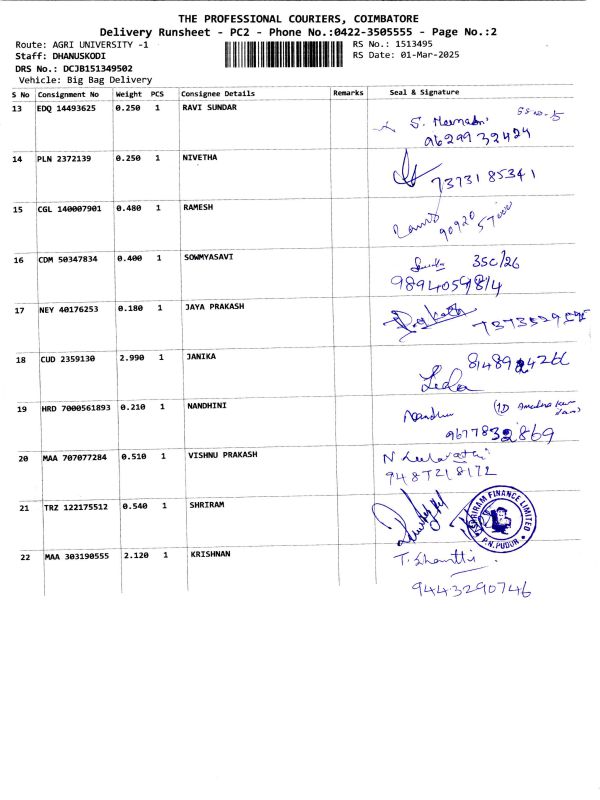 THE PROFESSIONAL COURIERS, COIMBATORE
Delivery Runsheet - PC2 - Phone No.:0422-3505555 - Page No.:2
Route: AGRI UNIVERSITY -1
RS No.: 1513495
Staff: DHANUSKODI
RS Date: 01-Mar-2025
DRS No.: DCJB151349502
Vehicle: Big Bag Delivery
S No Consignment No Weight PCS Consignee Details Remarks Seal & Signature
13 EDQ 14493625 0.250 1 RAVI SUNDAR
9629932424
14 PLN 2372139 0.250 1 NIVETHA
7373185341
15 CGL 140007901 0.480 1 RAMESH
90920 57000
16 CDM 50347834 0.400 1 SOWMYASAVI 35C/26
9894059814
17 NEY 40176253 0.180 1 JAYA PRAKASH
18 CUD 2359130 2.990 1 JANIKA
Leela
19 HRD 7000561893 0.210 1 NANDHINI
9677832869
20 MAA 707077284 0.510 1 VISHNU PRAKASH
9487218172
21 TRZ 122175512 0.540 1 SHRIRAM
SHRIRAM FINANCE LIMITED
P.N. PUDUR
22 MAA 303190555 2.120 1 KRISHNAN T. Shanthi
9443290746